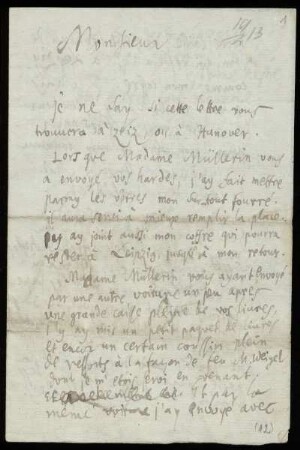 1
19/2 13
Monsieur
je ne say si cette lettre vous
trouvera à Zeiz, ou à Hanover.
Lors que Madame Müllerin vous
a envoyé vos hardes, j'ay fait mettre
parmy les vôtres mon fourré.
il aura servi à mieux remplir la place
j'ay joint aussi mon coffre qui pourra
rester à Leipzig jusqu'à mon retour.
Madame Müllerin vous ayant envoyé
par une autre voiture un peu apres
une grande caisse pleine de vos livres,
j'y ay mis un petit paquet de livres
et encor un certain coussin plein
de ressorts à la façon de feu M. Weigel
dont je m'etois servi en venant,
et par la
même j'ay envoyé avec
(12)